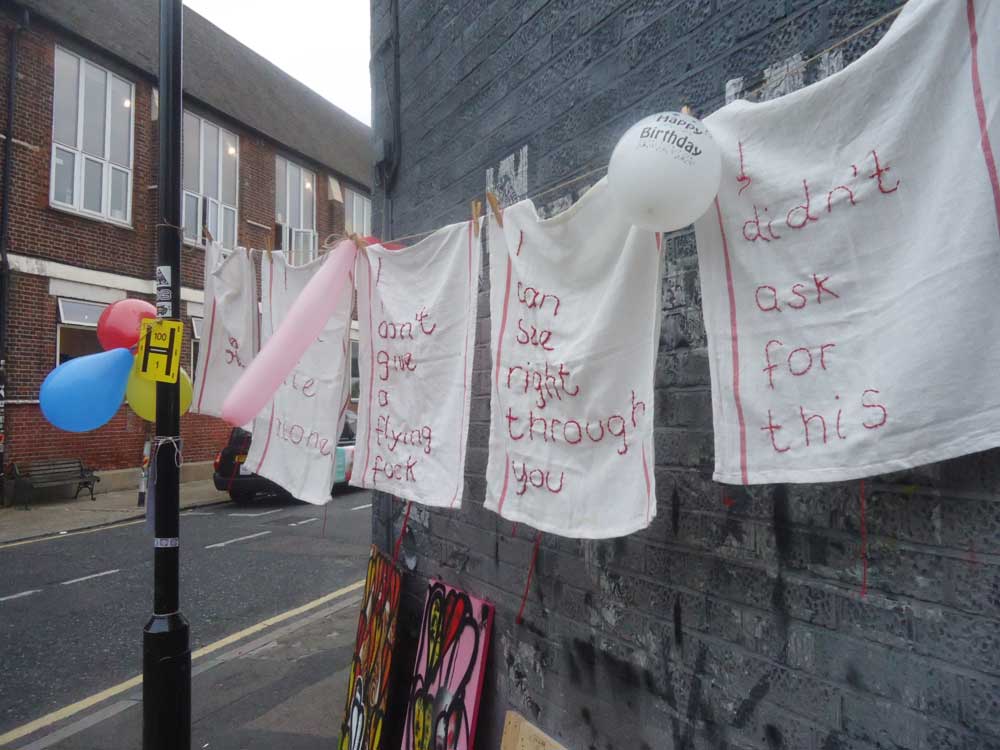 Happy
Birthday
I
didn't
ask
for
this
I
can
see
right
through
you
I
don't
give
a
flying
fuck
alone
100
H
1